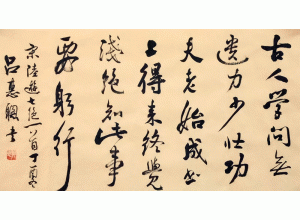 古人学问无
遗力少壮功
夫老始成纸
上得来终觉
浅绝知此事
要躬行
宋陆游七绝一首丁
吕惠书